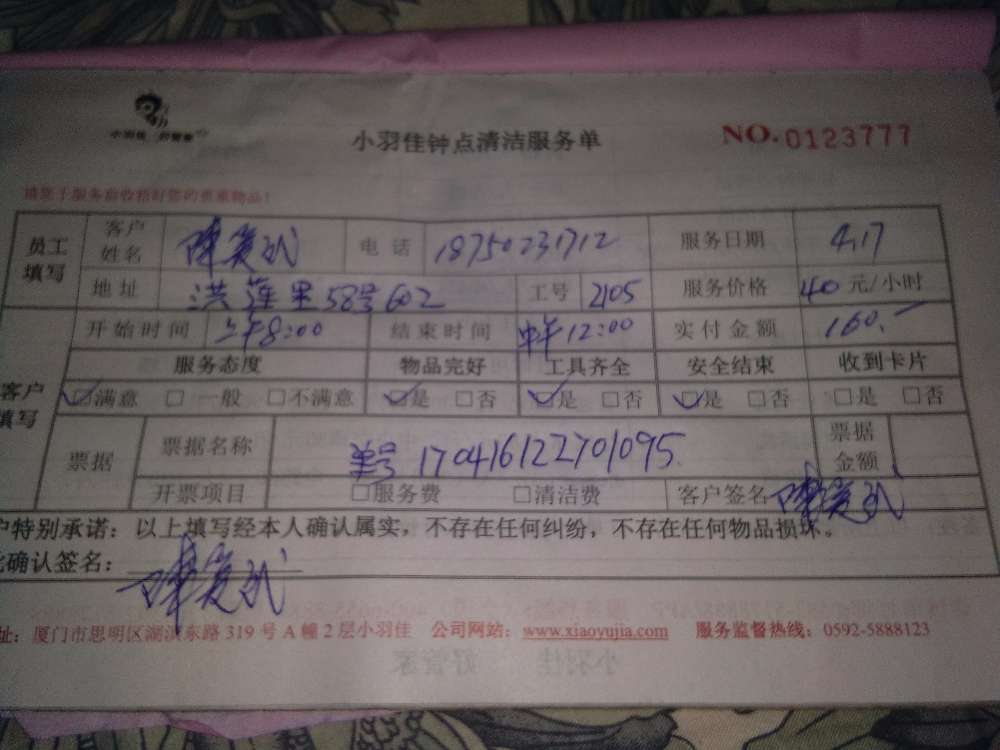 小羽佳 好管家
小羽佳钟点清洁服务单
NO.0123777
请您于服务前收拾好您的贵重物品!
员工填写 客户姓名 电话 18750231712 服务日期 4.17
地址 洪莲里58号602 工号 2105 服务价格 40元/小时
客户填写 开始时间 上午8:00 结束时间 中午12:00 实付金额 160.-
服务态度 物品完好 工具齐全 安全结束 收到卡片
☑满意 □一般 □不满意 ☑是 □否 ☑是 □否 ☑是 □否 □是 □否
票据 票据名称 单号 170416122701095 票据金额
开票项目 □服务费 □清洁费 客户签名
户特别承诺:以上填写经本人确认属实,不存在任何纠纷,不存在任何物品损坏。
此确认签名:
址:厦门市思明区湖滨东路319号A幢2层小羽佳 公司网站:www.xiaoyujia.com 服务监督热线:0592-5888123